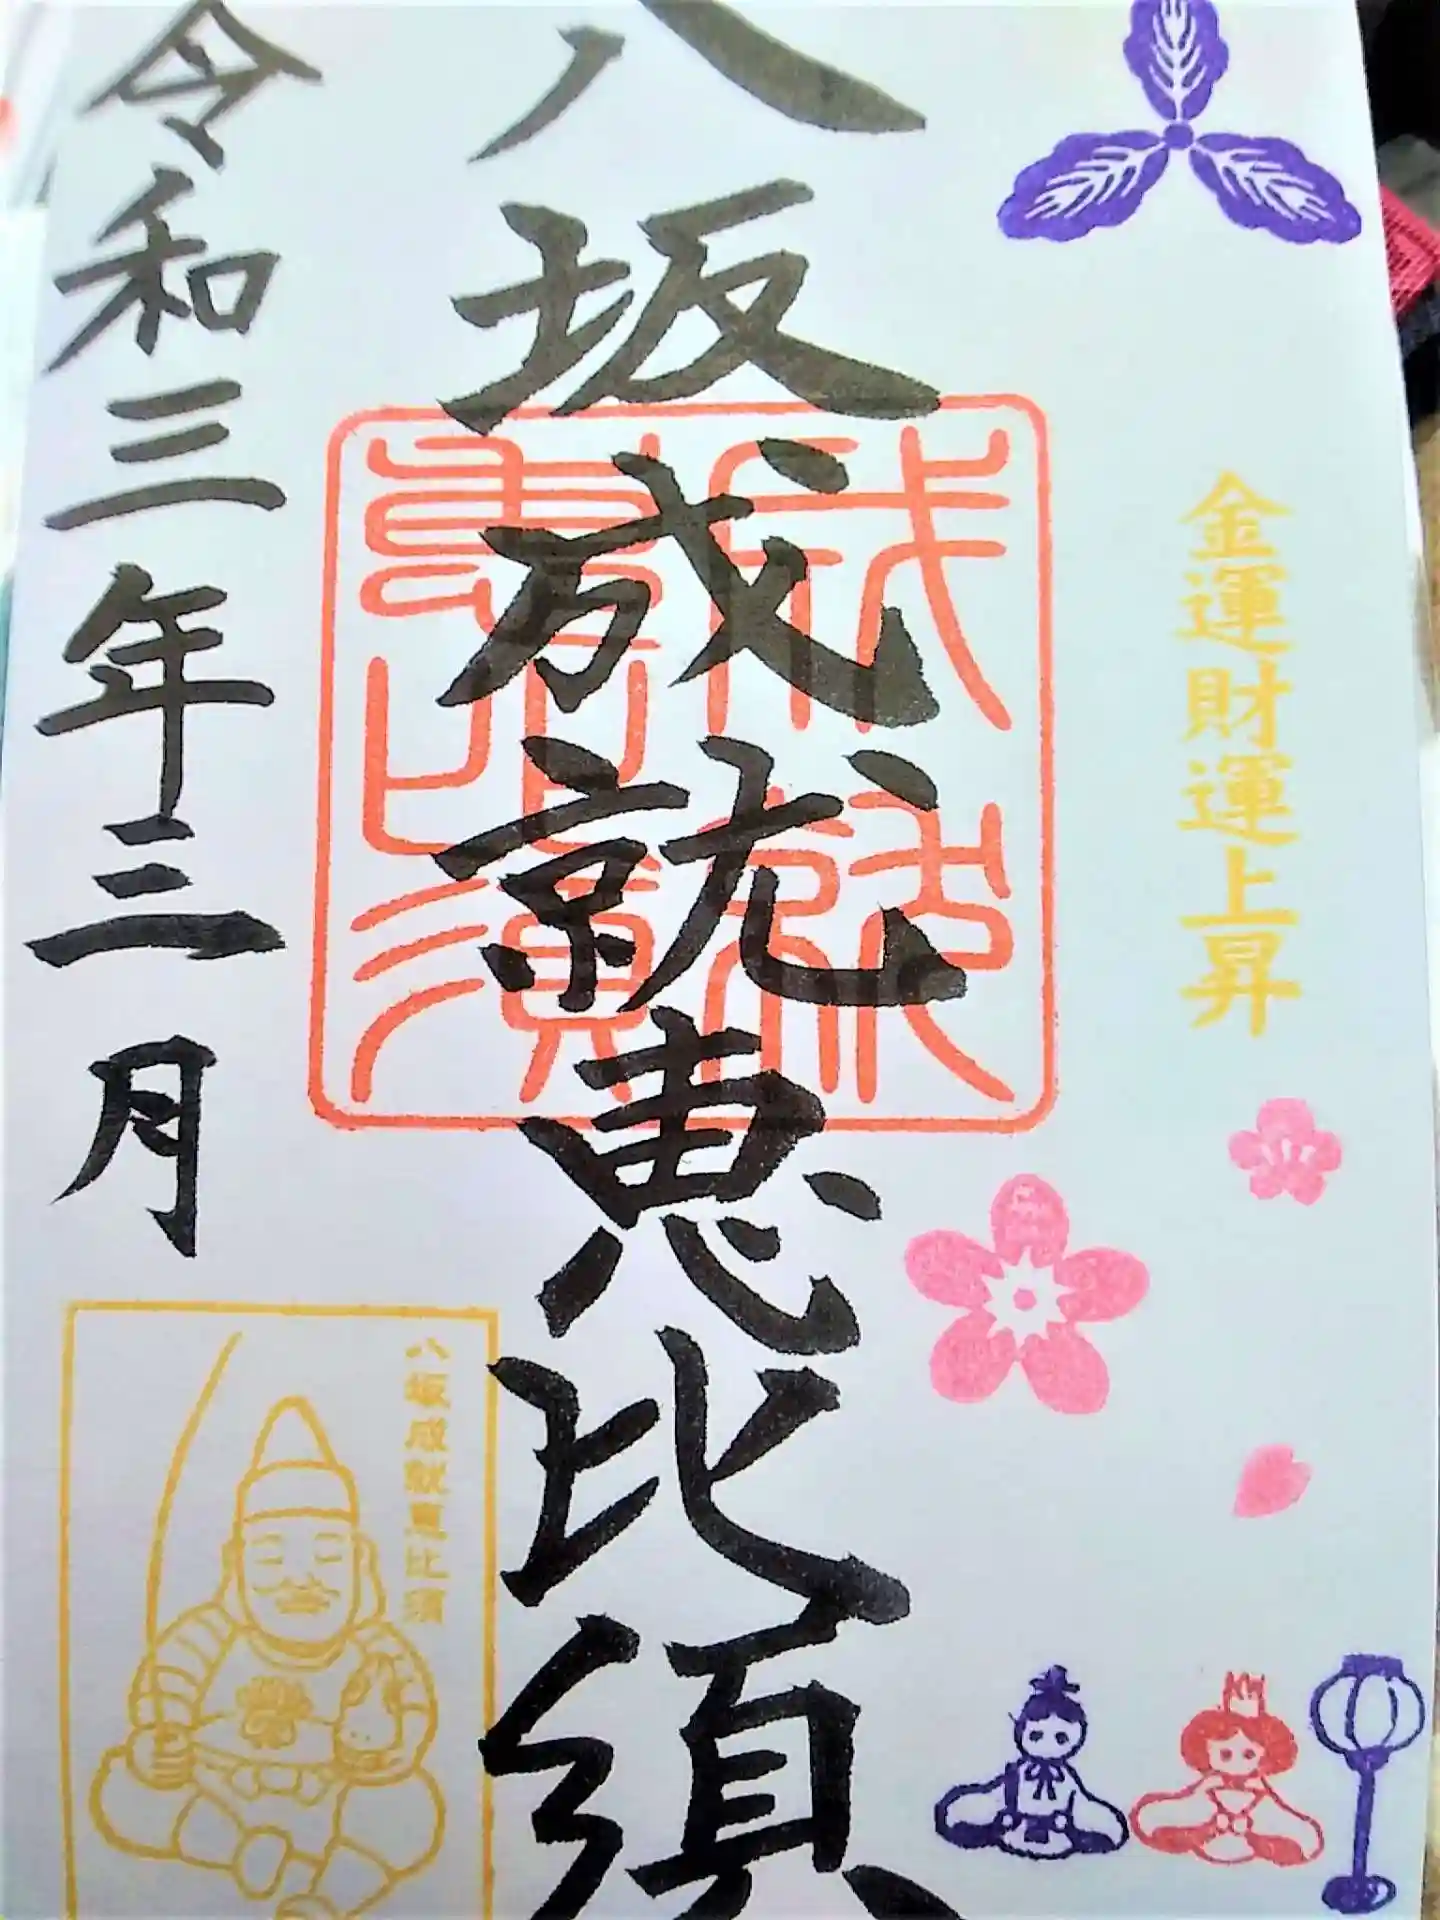 金運財運上昇
八坂成就恵比須
令和三年三月
八坂成就恵比須